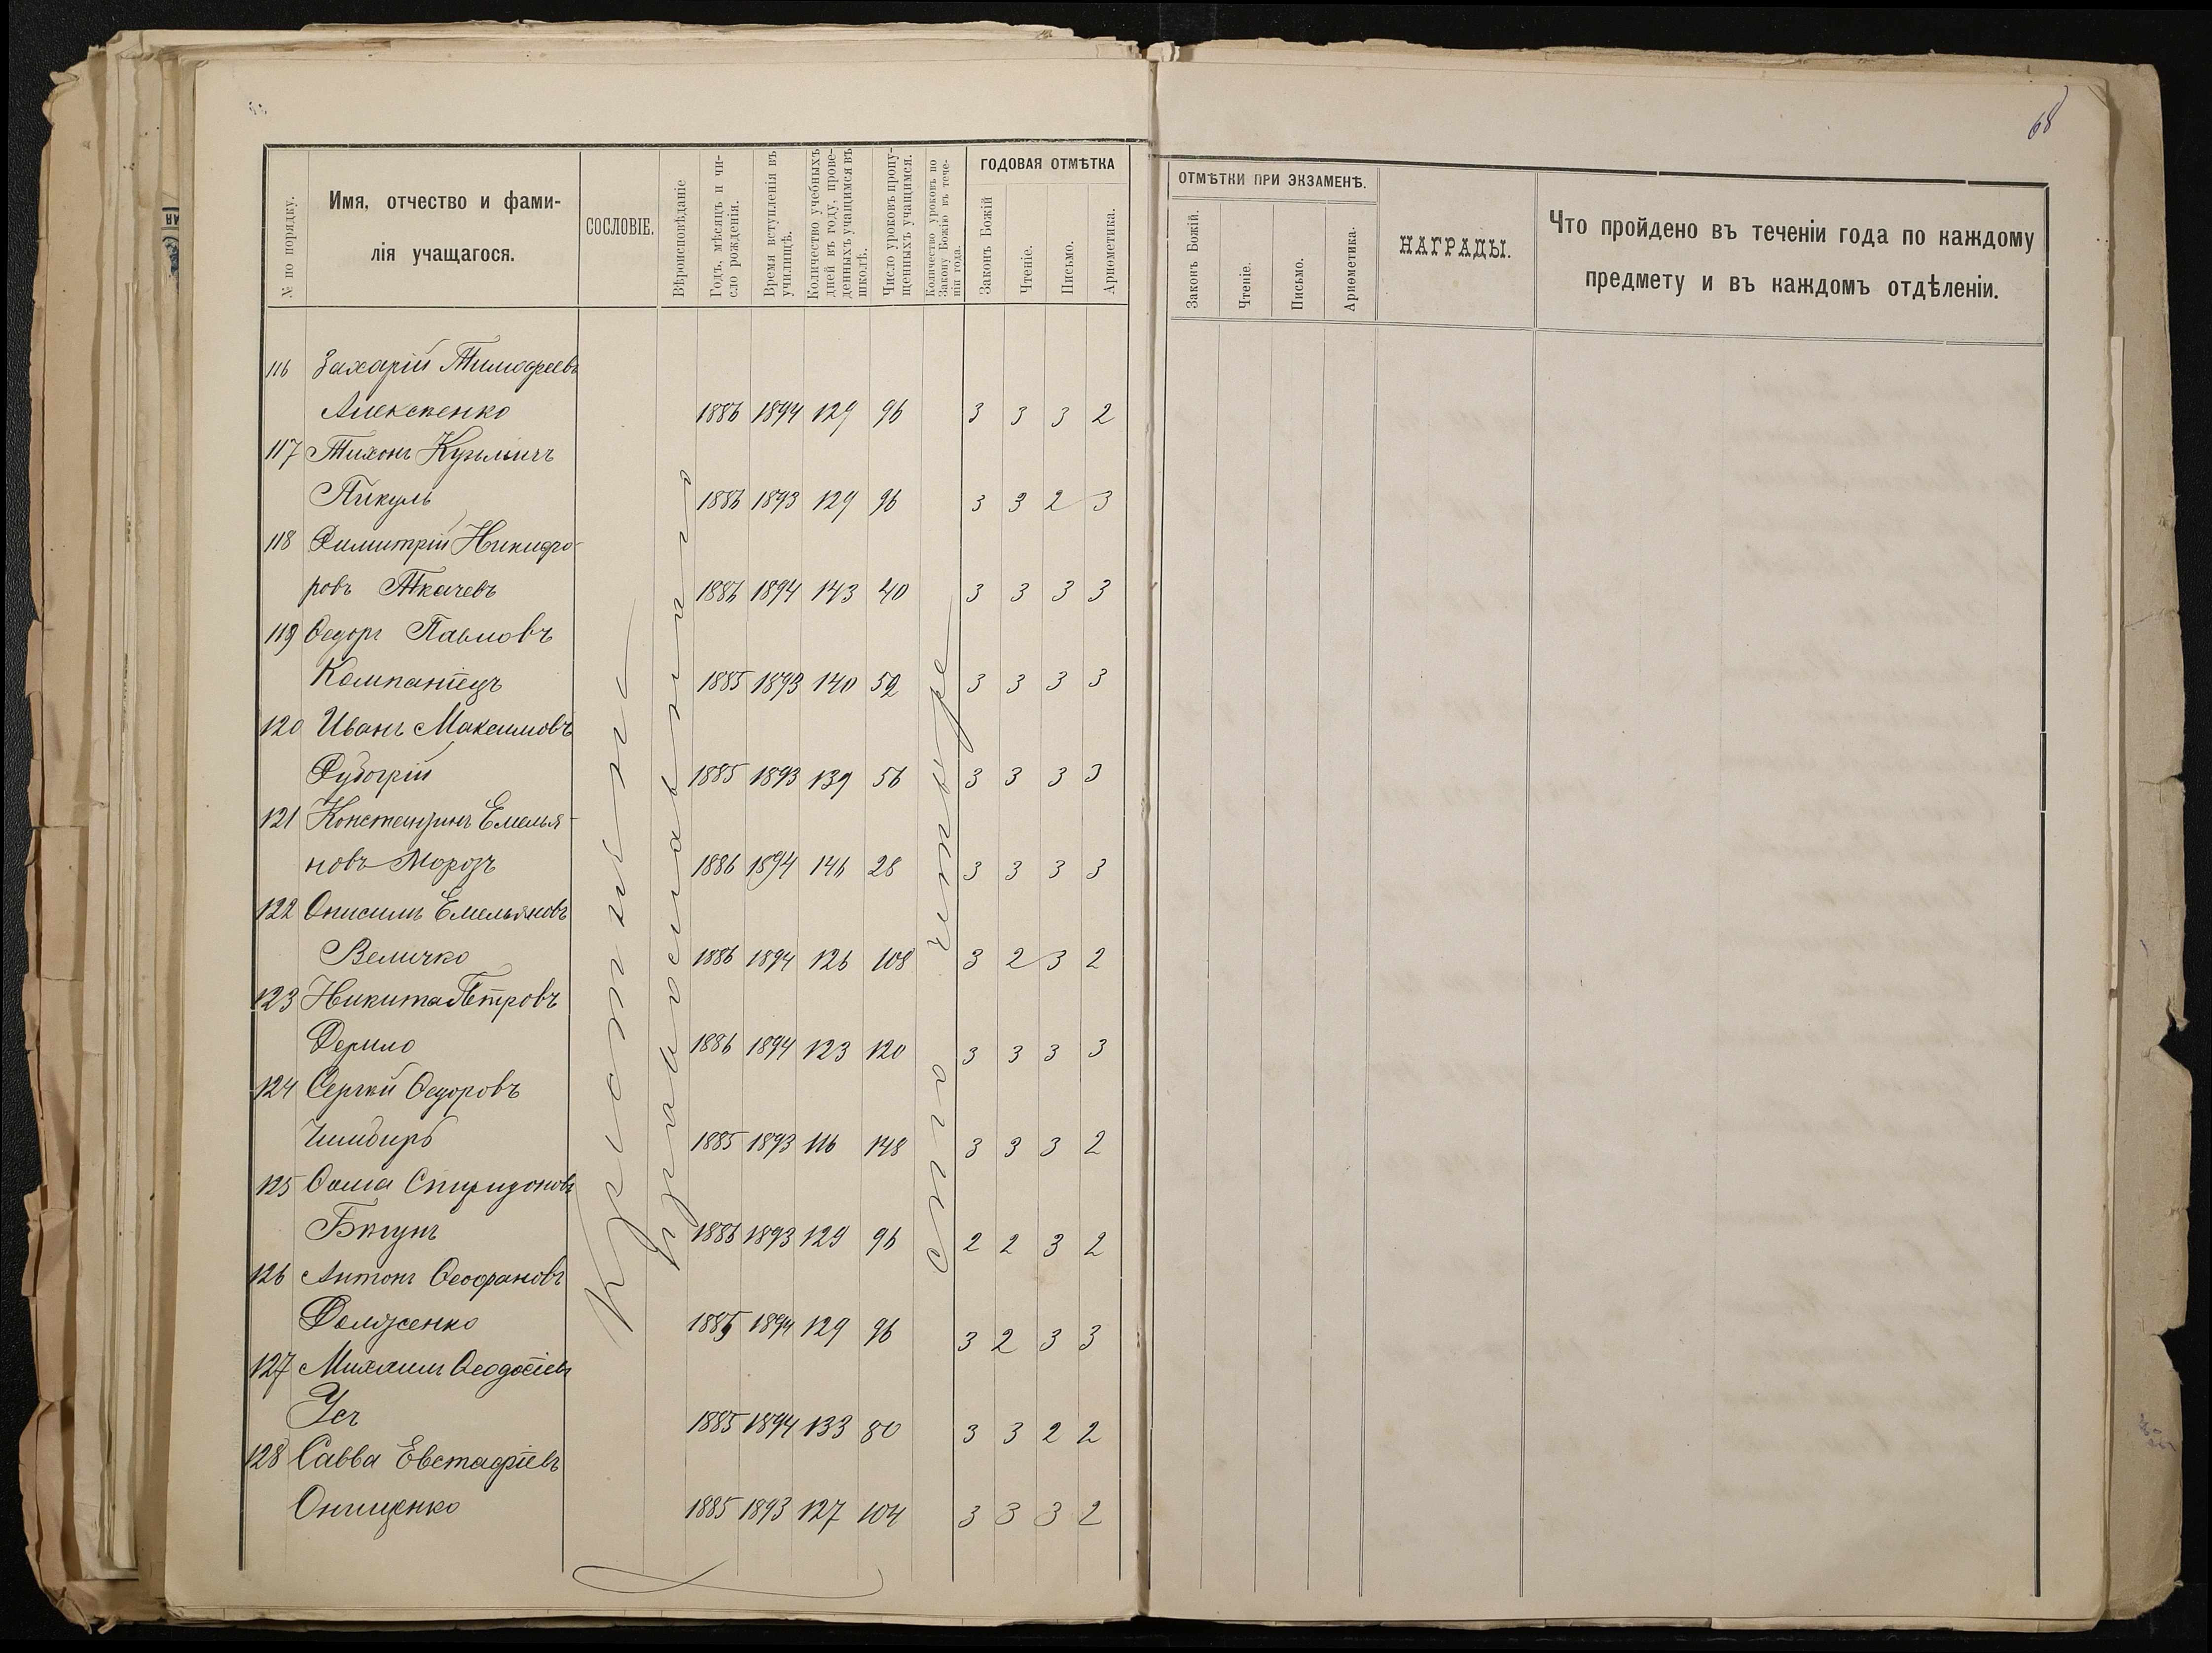 68
№ по порядку.
Имя, отчество и фами-
лія учащагося.
СОСЛОВІЕ.
Вѣроисповѣданіе
Годъ, мѣсяцъ и чи-
сло рожденія.
Время вступленія въ
училищѣ.
Количество учебныхъ
дней въ году, прове-
денныхъ учащимся въ
школѣ.
Число уроковъ пропу-
щенныхъ учащимся.
Количество уроковъ по
Закону Божію въ тече-
ніи года.
ГОДОВАЯ ОТМѢТКА
Законъ Божій
Чтеніе.
Письмо.
Ариѳметика.
ОТМѢТКИ ПРИ ЭКЗАМЕНѢ.
Законъ Божій.
Чтеніе.
Письмо.
Ариѳметика.
НАГРАДЫ.
Что пройдено въ теченіи года по каждому
предмету и въ каждомъ отдѣленіи.
116 Захарій Тимофеевъ
Алексенко 1886 1894 129 96 3 3 3 2
117 Тихонъ Кузьмичъ
Пикуль 1886 1893 129 96 3 3 2 3
118 Димитрій Никифо-
ровъ Ткачевъ 1886 1894 143 40 3 3 3 3
119 Ѳедоръ Павловъ
Компаніецъ 1885 1893 140 52 3 3 3 3
120 Иванъ Максимовъ
Дубогрій 1885 1893 139 56 3 3 3 3
121 Константинъ Емелья-
новъ Морозъ 1886 1894 146 28 3 3 3 3
122 Онисимъ Емельяновъ
Величко 1886 1894 126 108 3 2 3 2
123 Никита Петровъ
Дерило 1886 1894 123 120 3 3 3 3
124 Сергѣй Ѳедоровъ
Чимбиръ 1885 1893 116 148 3 3 3 2
125 Ѳома Спиридоновъ
Бѣгунъ 1886 1893 129 96 2 2 3 2
126 Антонъ Ѳеофановъ
Долженко 1885 1894 129 96 3 2 3 3
127 Михаилъ Ѳеодосіевъ
Усъ 1885 1894 133 80 3 3 2 2
128 Савва Евстафіевъ
Онищенко 1885 1893 127 104 3 3 3 2
Крестьяне
Православнаго
сто четыре